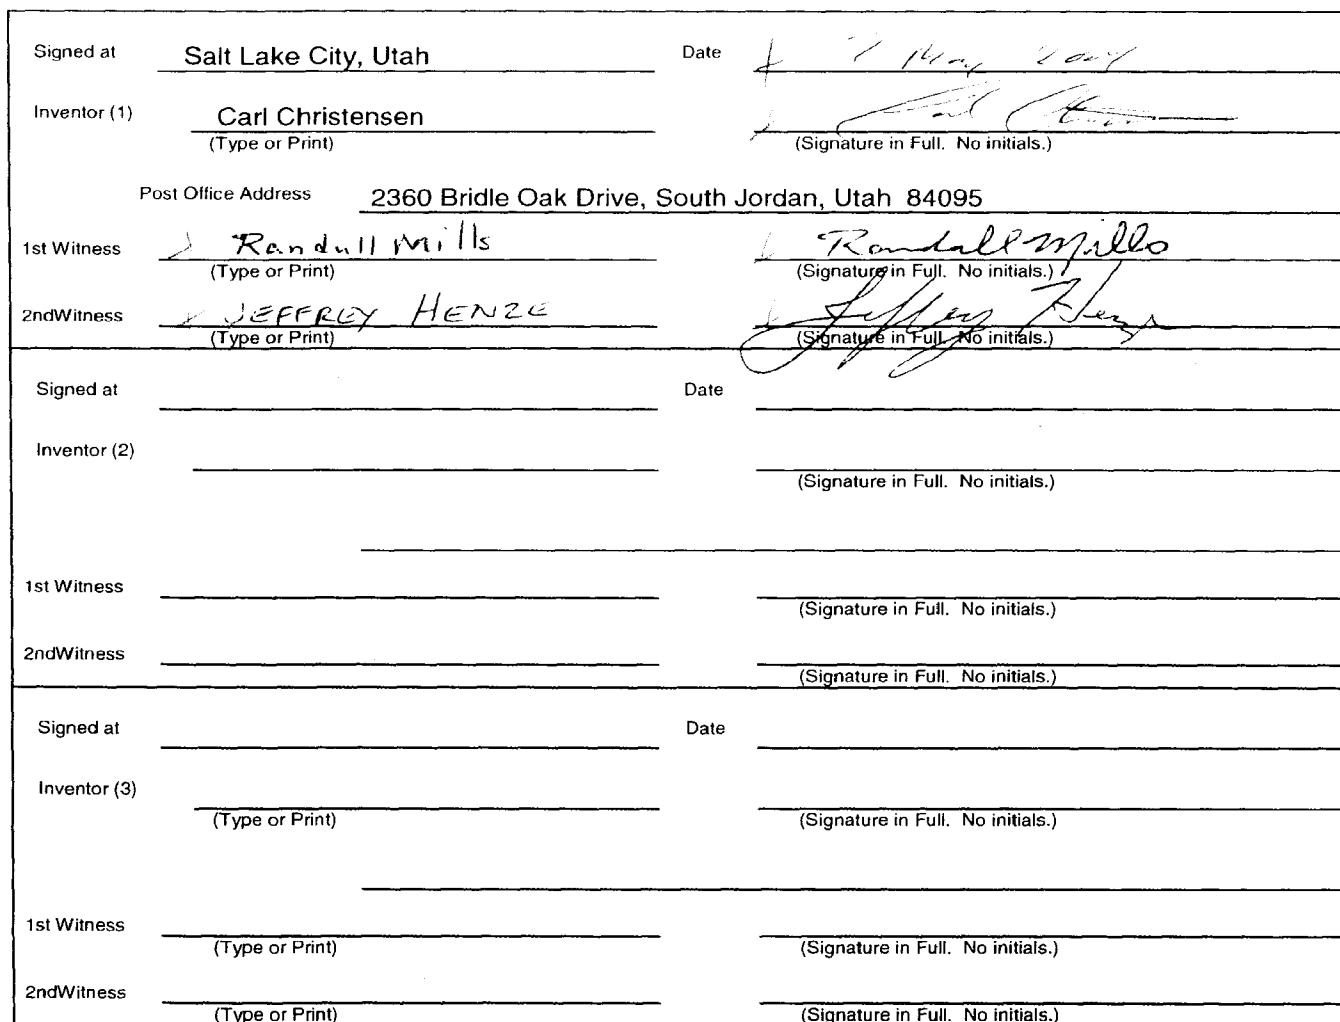 Signed at Salt Lake City, Utah Date 7 May 2004
Inventor (1) Carl Christensen
(Type or Print) (Signature in Full. No initials.)
Post Office Address 2360 Bridle Oak Drive, South Jordan, Utah 84095
1st Witness Randall Mills Randall Mills
(Type or Print) (Signature in Full. No initials.)
2ndWitness JEFFREY HENZE Jeffrey Henze
(Type or Print) (Signature in Full. No initials.)
Signed at Date
Inventor (2)
(Signature in Full. No initials.)
1st Witness
(Signature in Full. No initials.)
2ndWitness
(Signature in Full. No initials.)
Signed at Date
Inventor (3)
(Type or Print) (Signature in Full. No initials.)
1st Witness
(Type or Print) (Signature in Full. No initials.)
2ndWitness
(Type or Print) (Signature in Full. No initials.)